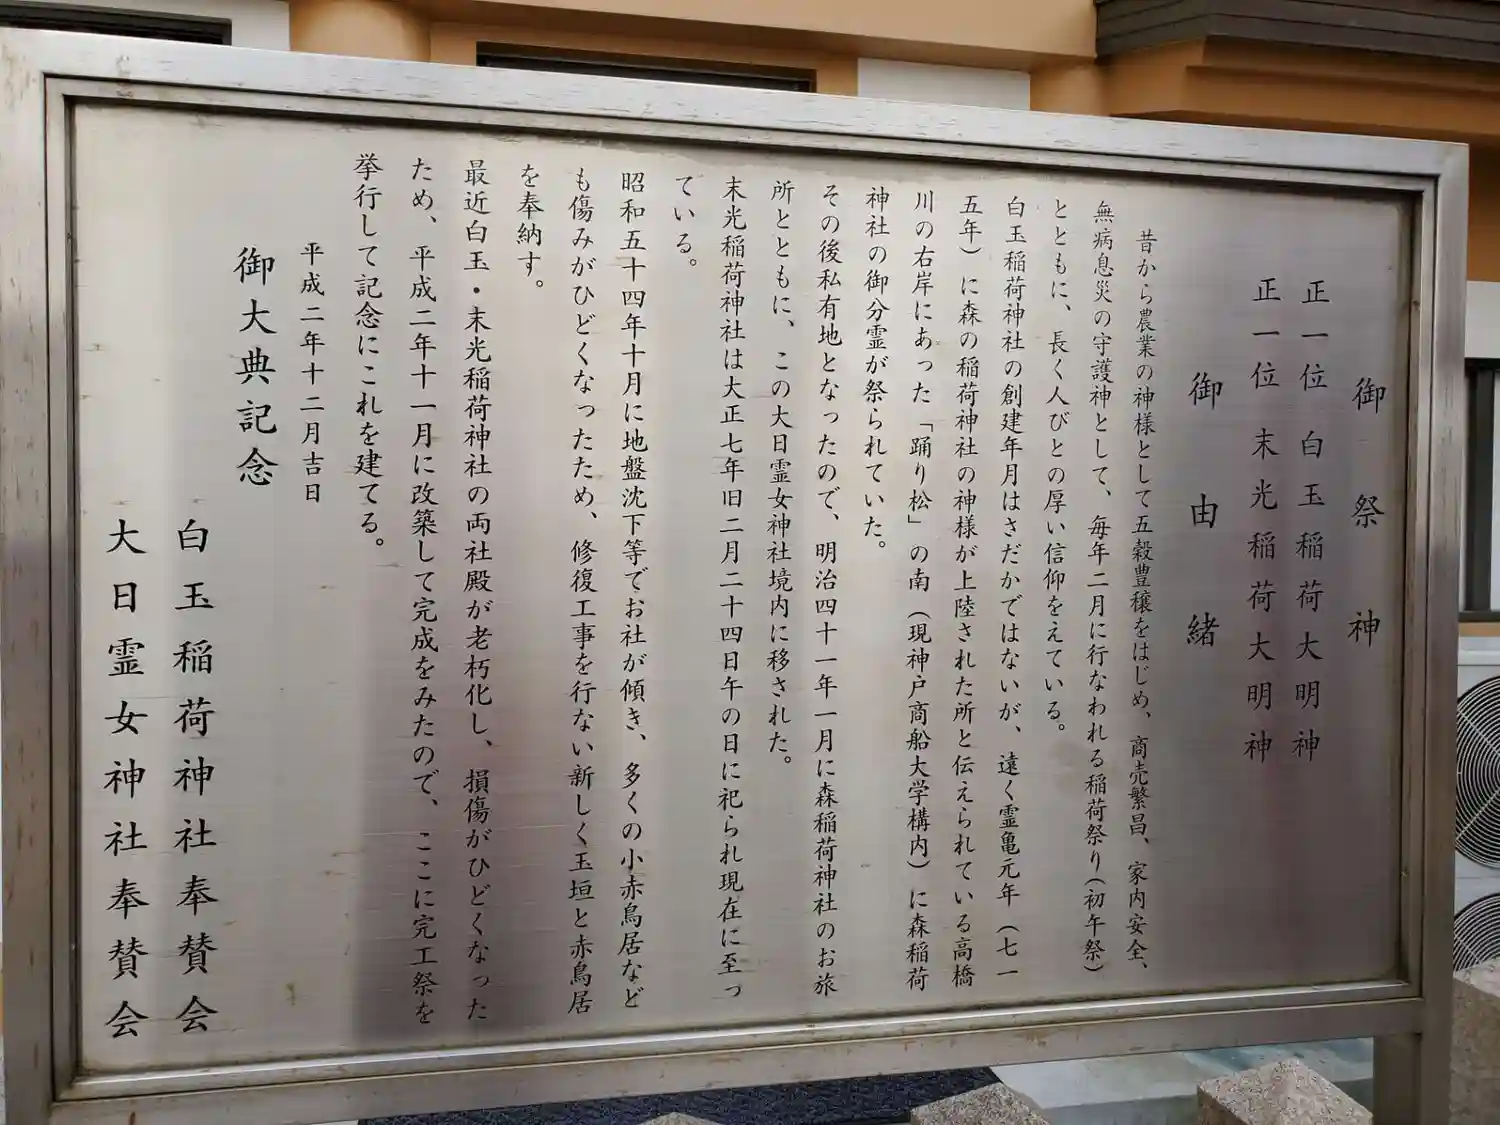 御祭神
正一位 白玉稲荷大明神
正一位 末光稲荷大明神
御由緒
昔から農業の神様として五穀豊穣をはじめ、商売繁昌、家内安全、
無病息災の守護神として、毎年二月に行なわれる稲荷祭り(初午祭)
とともに、長く人びとの厚い信仰をえている。
白玉稲荷神社の創建年月はさだかではないが、遠く霊亀元年(七一
五年)に森の稲荷神社の神様が上陸された所と伝えられている高橋
川の右岸にあった「踊り松」の南(現神戸商船大学構内)に森稲荷
神社の御分霊が祭られていた。
その後私有地となったので、明治四十一年一月に森稲荷神社のお旅
所とともに、この大日霊女神社境内に移された。
末光稲荷神社は大正七年旧二月二十四日午の日に祀られ現在に至っ
ている。
昭和五十四年十月に地盤沈下等でお社が傾き、多くの小赤鳥居など
も傷みがひどくなったため、修復工事を行ない新しく玉垣と赤鳥居
を奉納す。
最近白玉・末光稲荷神社の両社殿が老朽化し、損傷がひどくなった
ため、平成二年十一月に改築して完成をみたので、ここに完工祭を
挙行して記念にこれを建てる。
平成二年十二月吉日
御大典記念
白玉稲荷神社奉賛会
大日霊女神社奉賛会